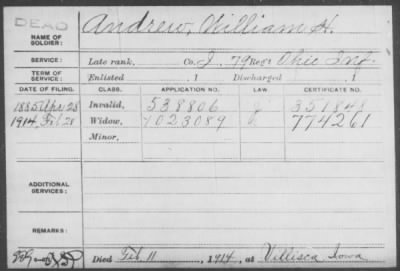 DEAD
NAME OF SOLDIER: Andrew, William H.
SERVICE: Late rank, Co. I, 79 Reg't Ohio Inf.
TERM OF SERVICE: Enlisted , 1 Discharged , 1
DATE OF FILING. CLASS. APPLICATION NO. LAW CERTIFICATE NO.
1885 Apr 28 Invalid, 538806 351848
1914, Feb 28 Widow, 1023089 774261
Minor,
ADDITIONAL SERVICES:
REMARKS:
Died Feb. 11, 1914, at Villisca, Iowa